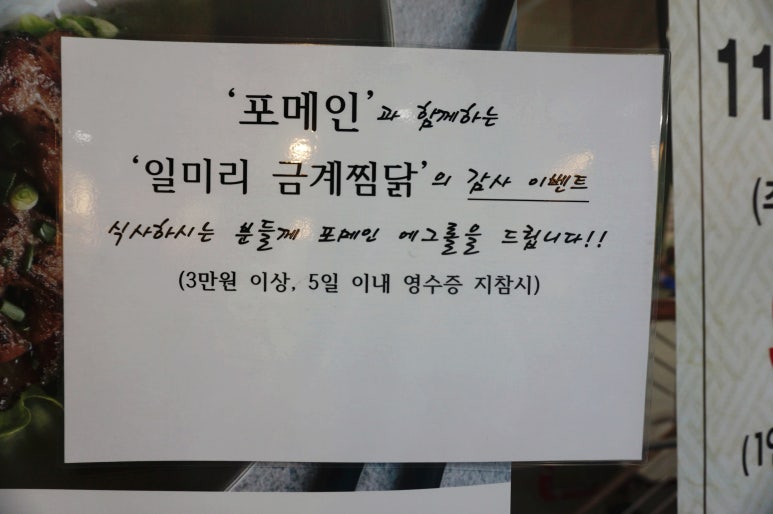 '포메인'과 함께하는
'일미리 금계찜닭'의 감사 이벤트
식사하시는 분들께 포메인 에그롤을 드립니다!!
(3만원 이상, 5일 이내 영수증 지참시)
11